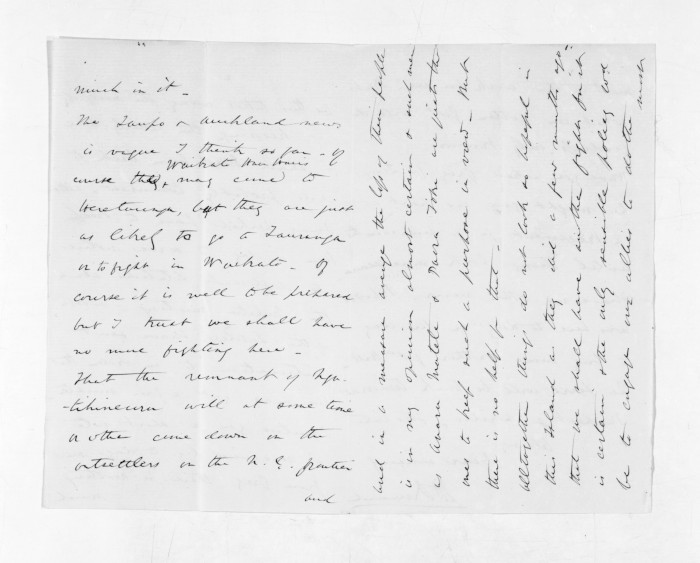 "
much in it -
The Taupo & Auckland news
is vague I think so far - Of
Waikato Hau Haus
course they, may come to
Heretaunga, but they are just
as likely to go to Tauranga
or to fight in Waikato - Of
course it is well to be prepared
but I trust we shall have
no more fighting here -
That the remnant of Nga-
-tihineuru will at some time
or other come down on the
outsettlers on the N. E. frontier
and
and in a measure avenge the loss of their people
is in my opinion almost certain & such men
as Anaru Matete & Paora Toki are just the
ones to keep such a purpose in view - But
there is no help for that -
alltogether things do not look so hopeful in
this Island as they did a few months ago -
that we shall have another fight for it
is certain & the only sensible policy wd
be to engage our allies to do the most